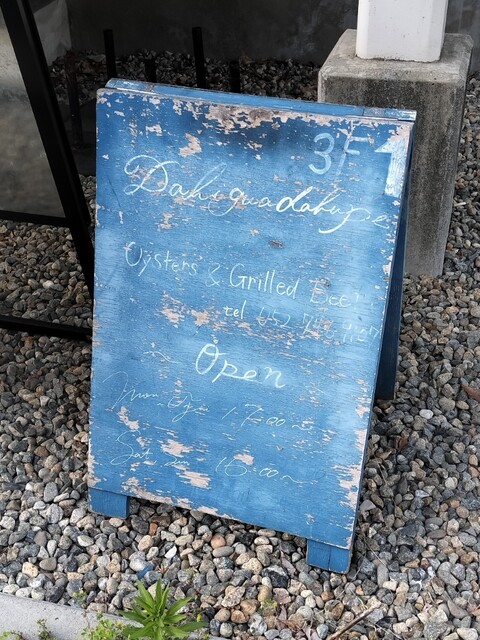 3F
Dahiguadahipe
Oysters & Grilled Bee
tel 052
Open
17:00~
Sat 16:00~